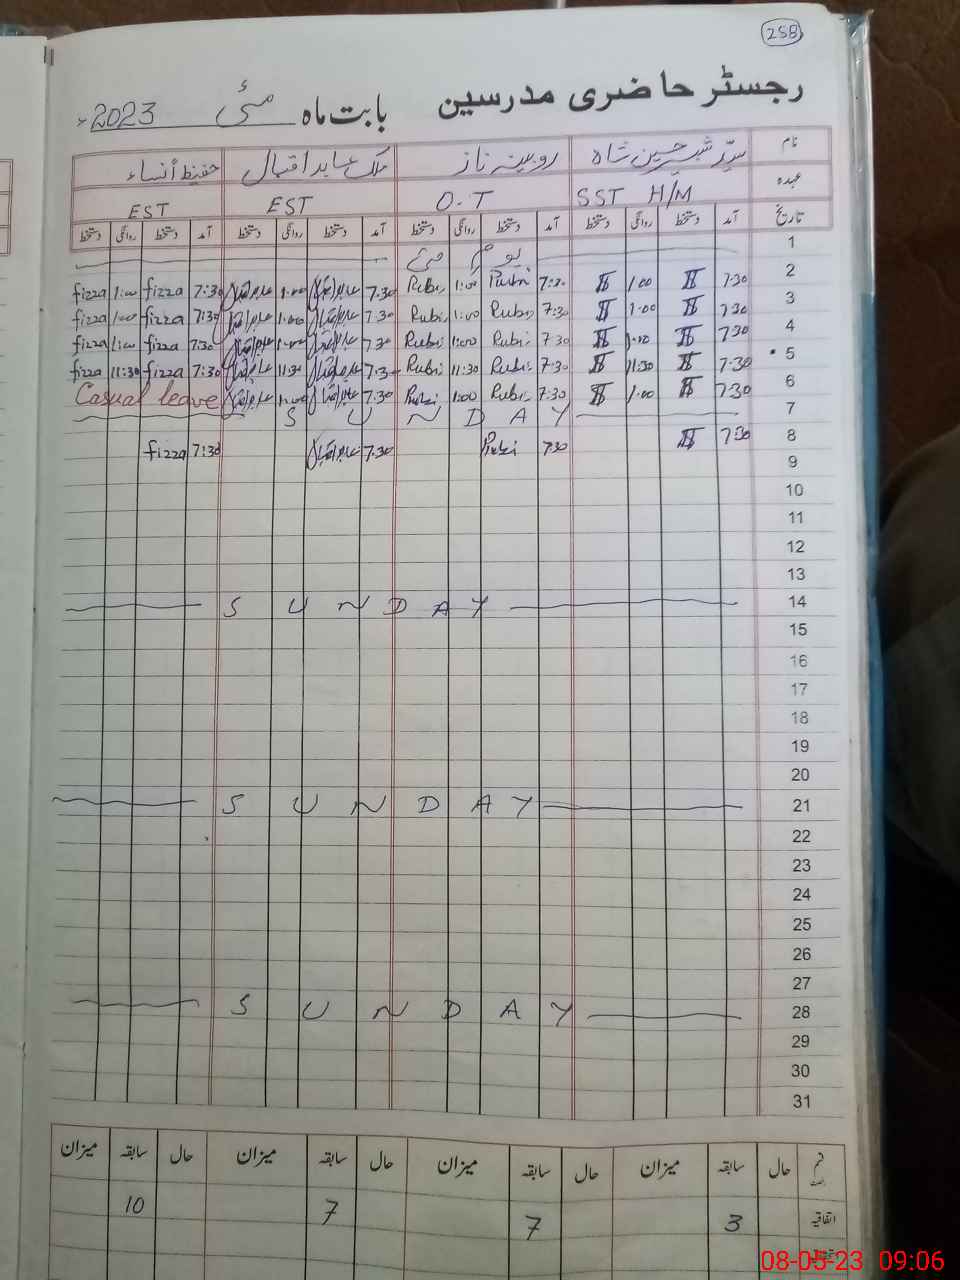 258
رجسٹر حاضری مدرسین بابت ماہ مئی 2023ء
نام سید شبیر حسین شاہ روبینہ ناز ملک عابد اقبال حفیظ النساء
عہدہ SST H/M O.T EST EST
تاریخ آمد دستخط روانگی دستخط آمد دستخط روانگی دستخط آمد دستخط روانگی دستخط آمد دستخط روانگی دستخط
1 یوم مئی
2 7:30 1:00 7:30 Rubi 1:00 Rubi 7:30 عابد اقبال 1:00 عابد اقبال 7:30 fizza 1:00 fizza
3 7:30 1:00 7:30 Rubi 1:00 Rubi 7:30 عابد اقبال 1:00 عابد اقبال 7:30 fizza 1:00 fizza
4 7:30 1:00 7:30 Rubi 1:00 Rubi 7:30 عابد اقبال 1:00 عابد اقبال 7:30 fizza 1:00 fizza
5 7:30 11:30 7:30 Rubi 11:30 Rubi 7:30 عابد اقبال 11:30 عابد اقبال 7:30 fizza 11:30 fizza
6 7:30 1:00 7:30 Rubi 1:00 Rubi 7:30 عابد اقبال 1:00 عابد اقبال Casual leave
7 SUNDAY
8 7:30 7:30 Rubi 7:30 عابد اقبال 7:30 fizza
9
10
11
12
13
14 SUNDAY
15
16
17
18
19
20
21 SUNDAY
22
23
24
25
26
27
28 SUNDAY
29
30
31
قسم حال سابقہ میزان حال سابقہ میزان حال سابقہ میزان حال سابقہ میزان
اتفاقیہ 3 7 7 10
08-05-23 09:06